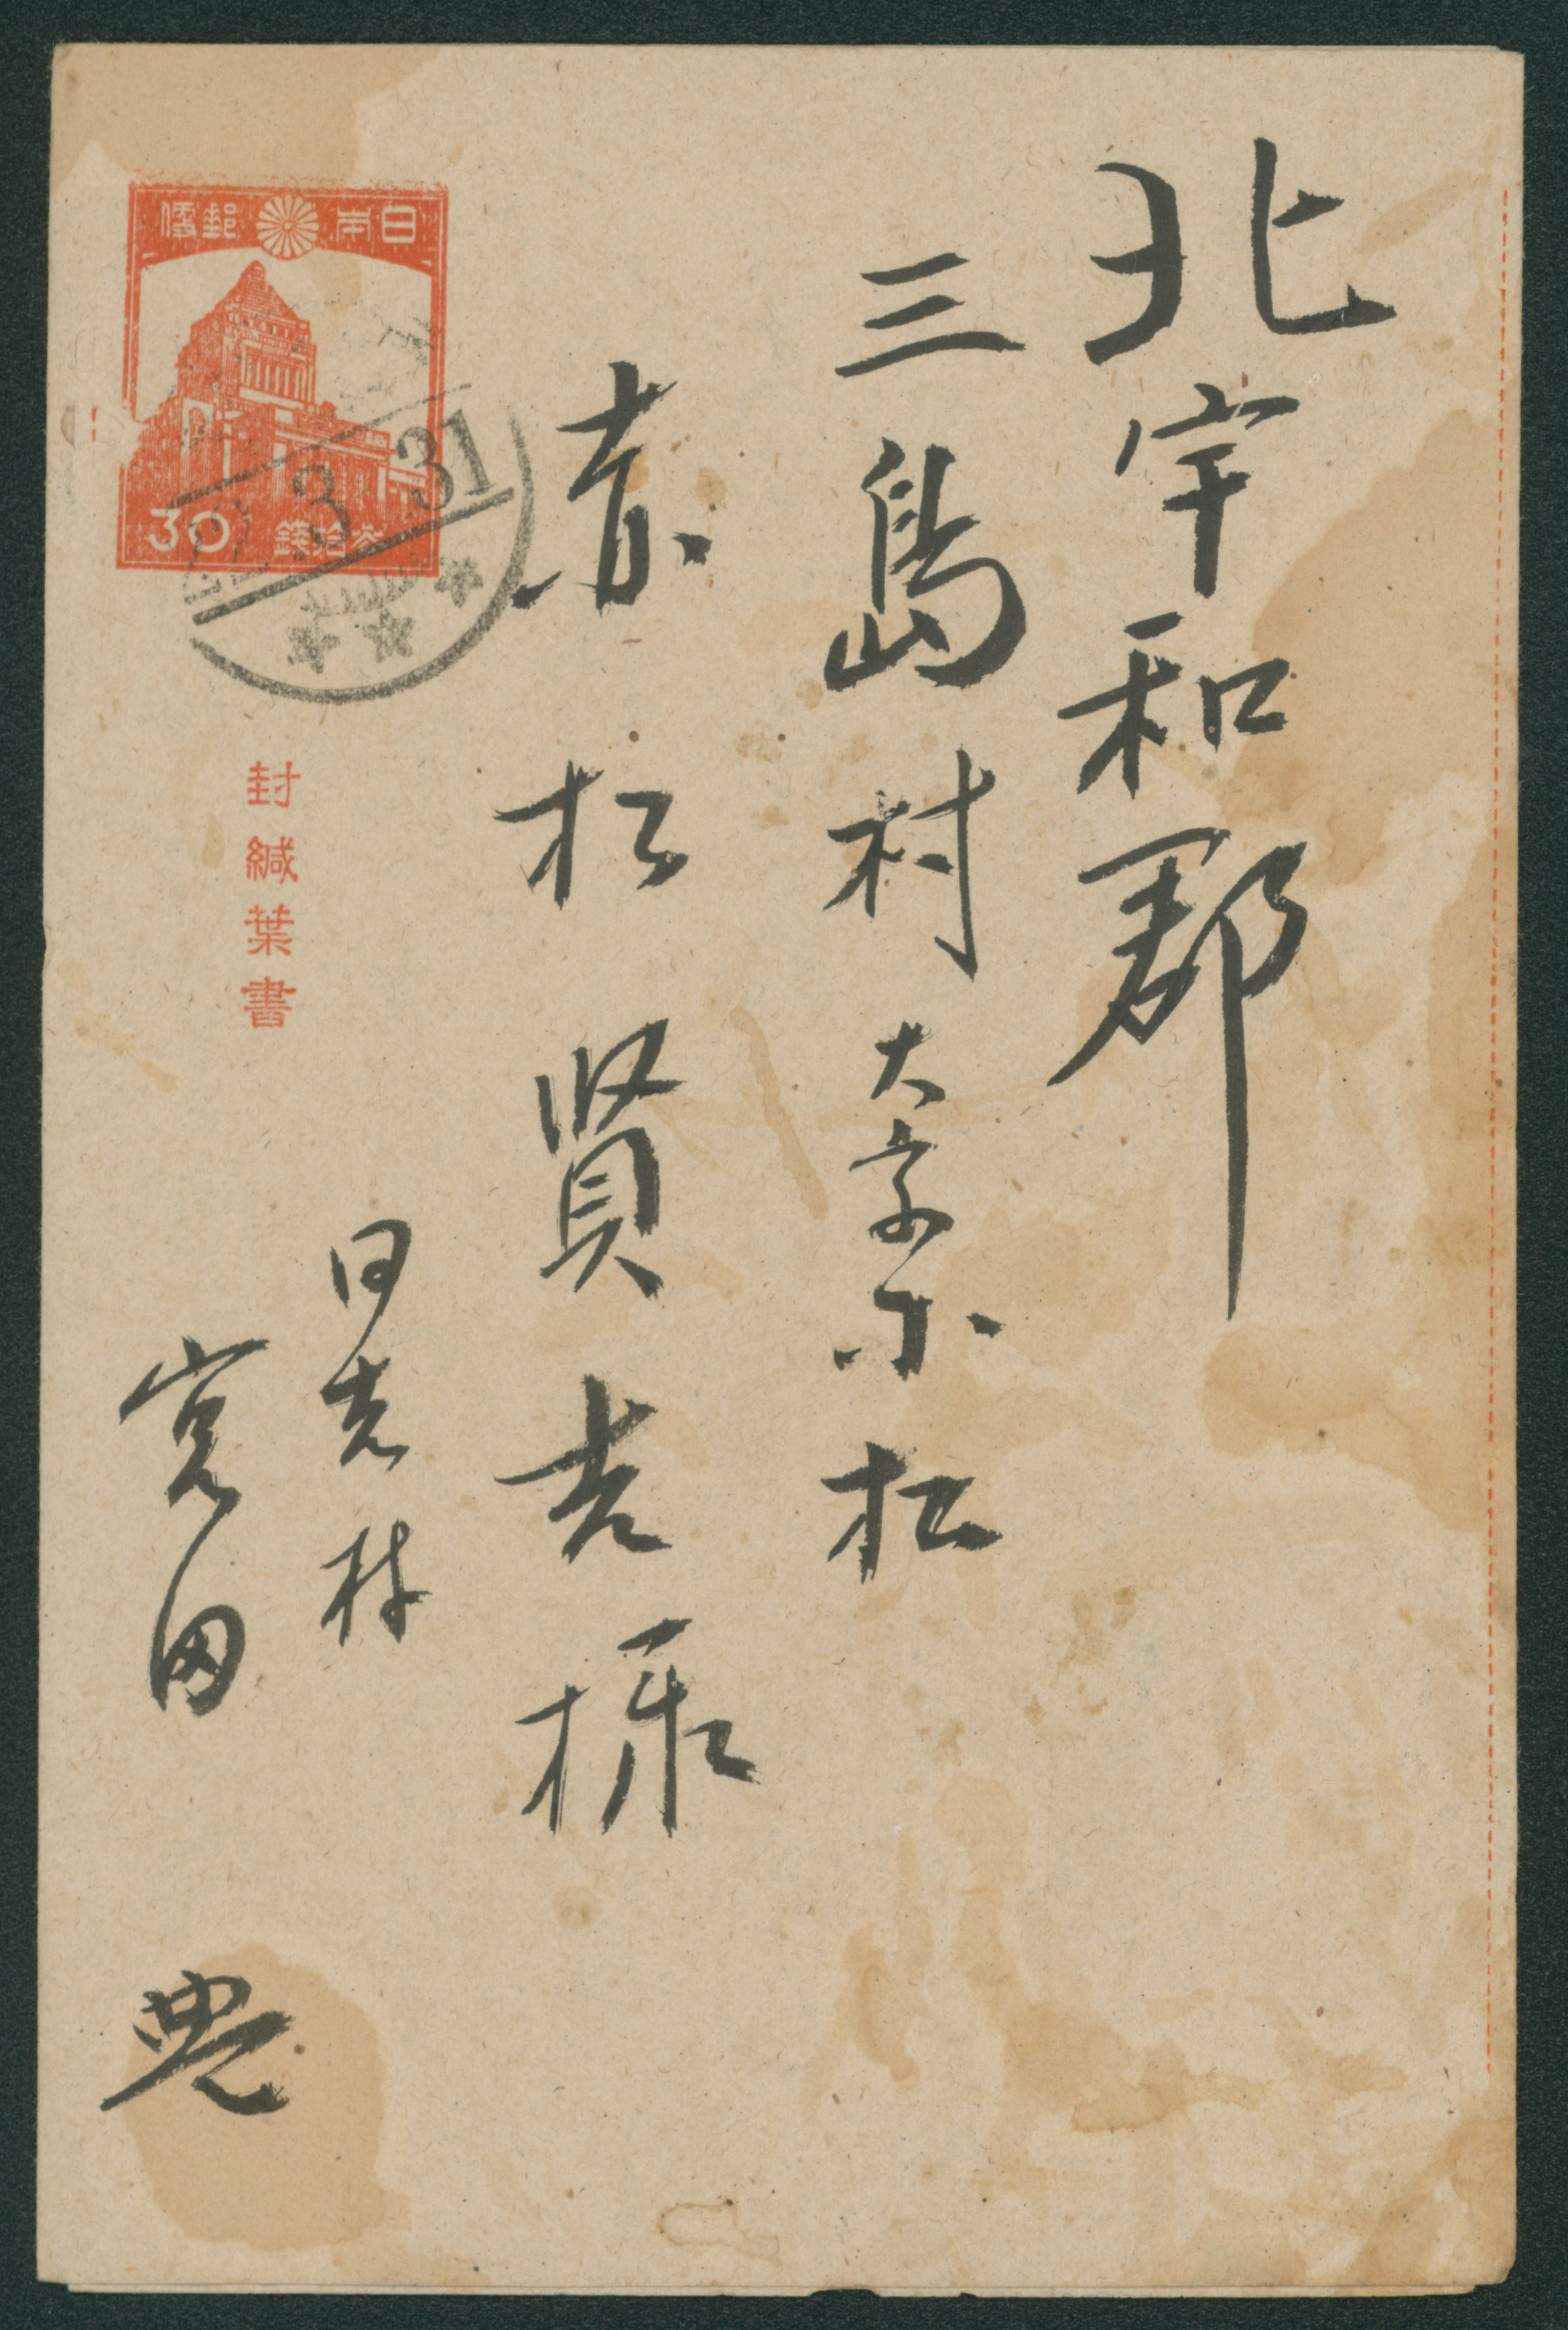 北宇和郡
三島村大字小松
赤松賢吉様
日本郵便
30 参拾銭
22.3.31
封緘葉書